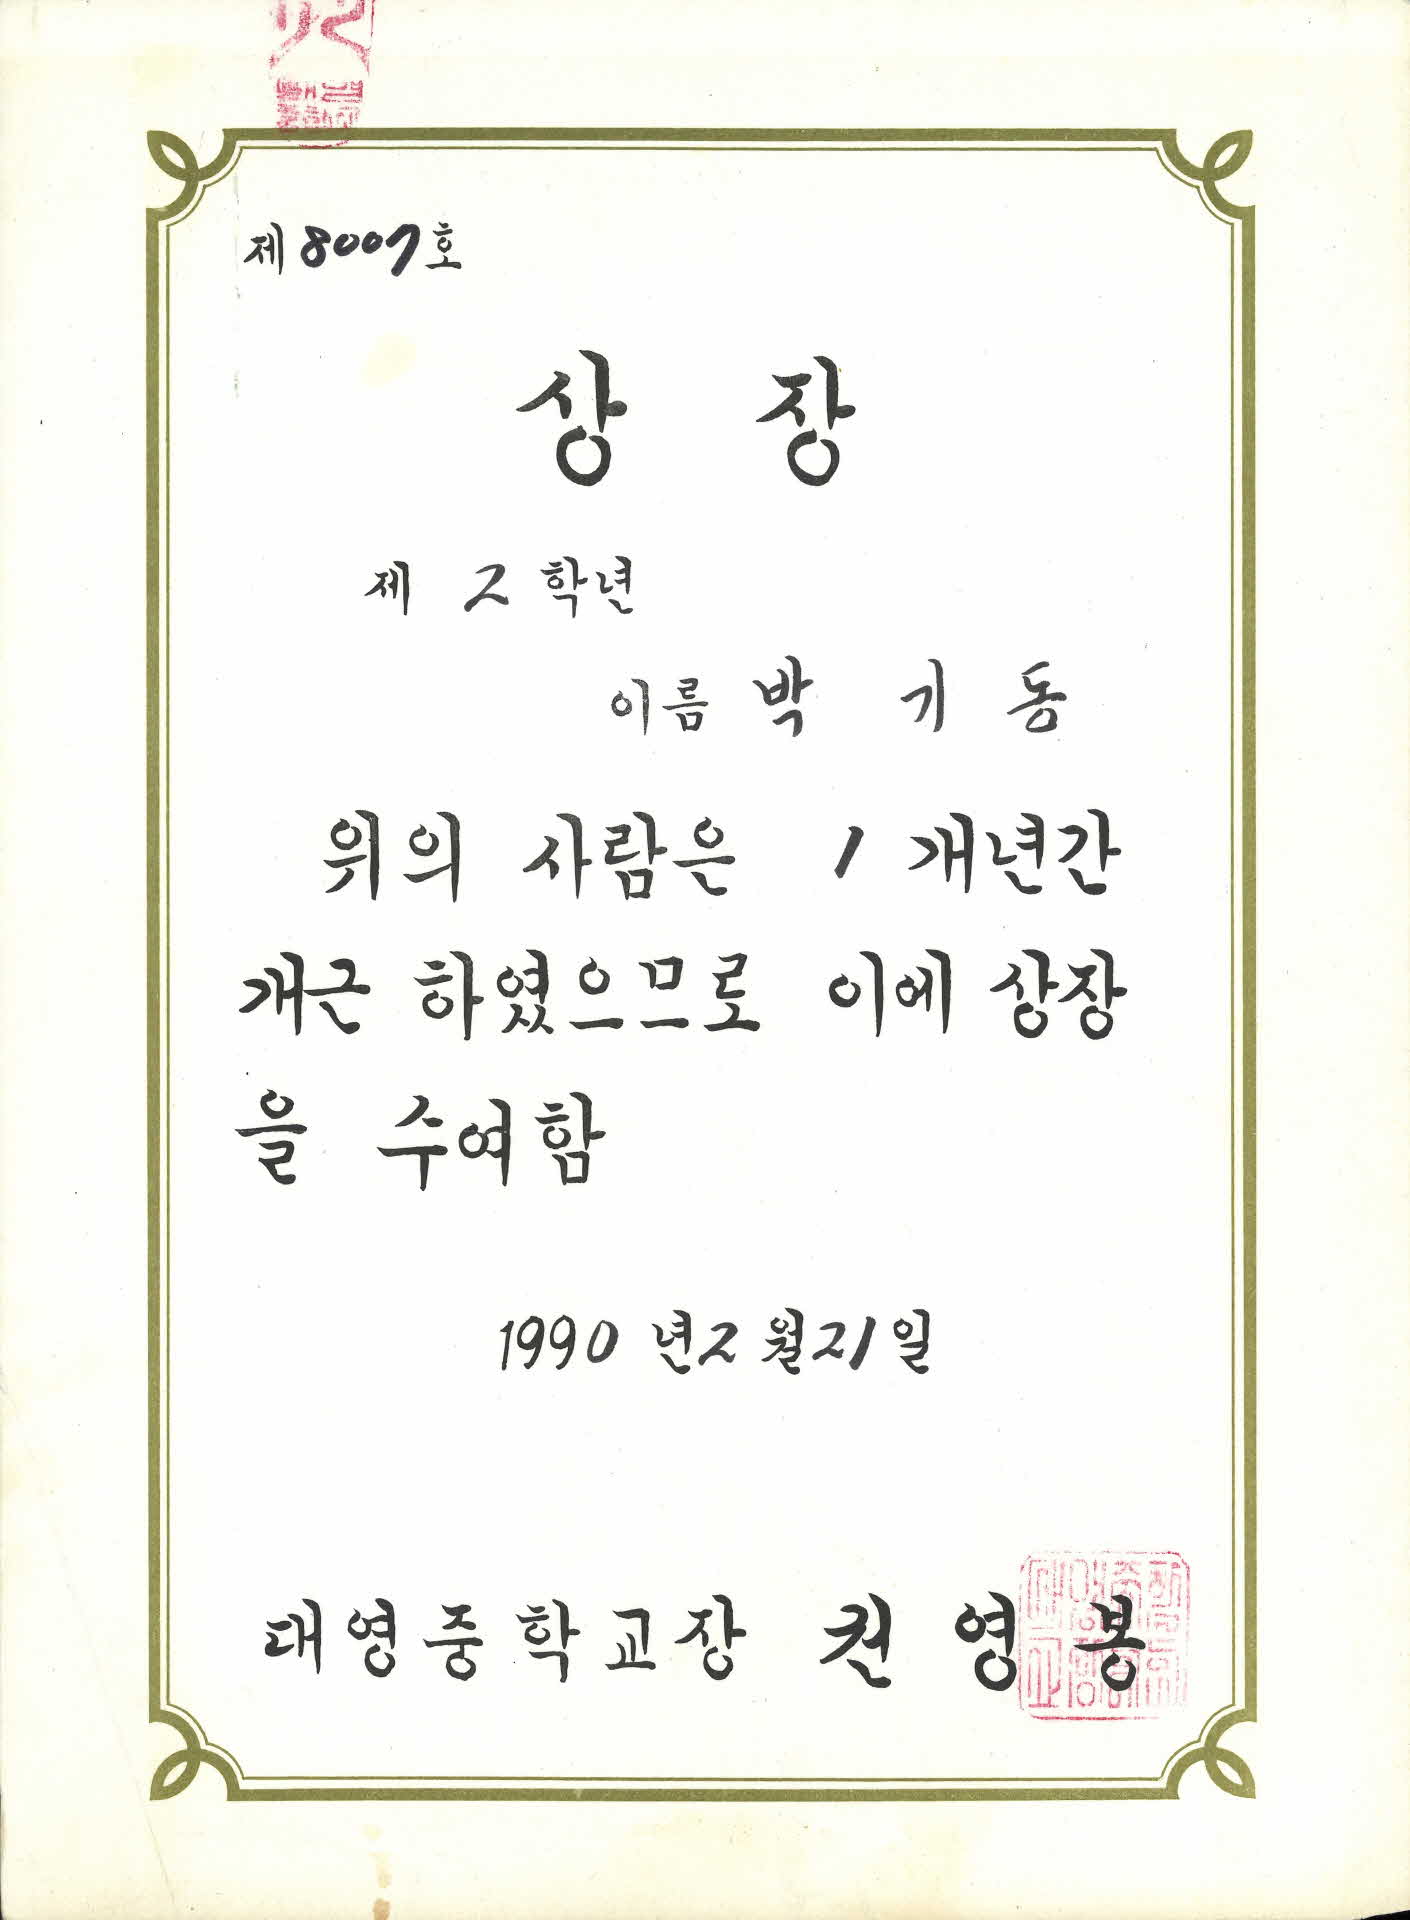 제 8007 호
상 장
제 2 학년
이름 박 기 동
위의 사람은 1 개년간
개근 하였으므로 이에 상장
을 수여함
1990 년 2 월 21 일
대영중학교장 권 영 봉